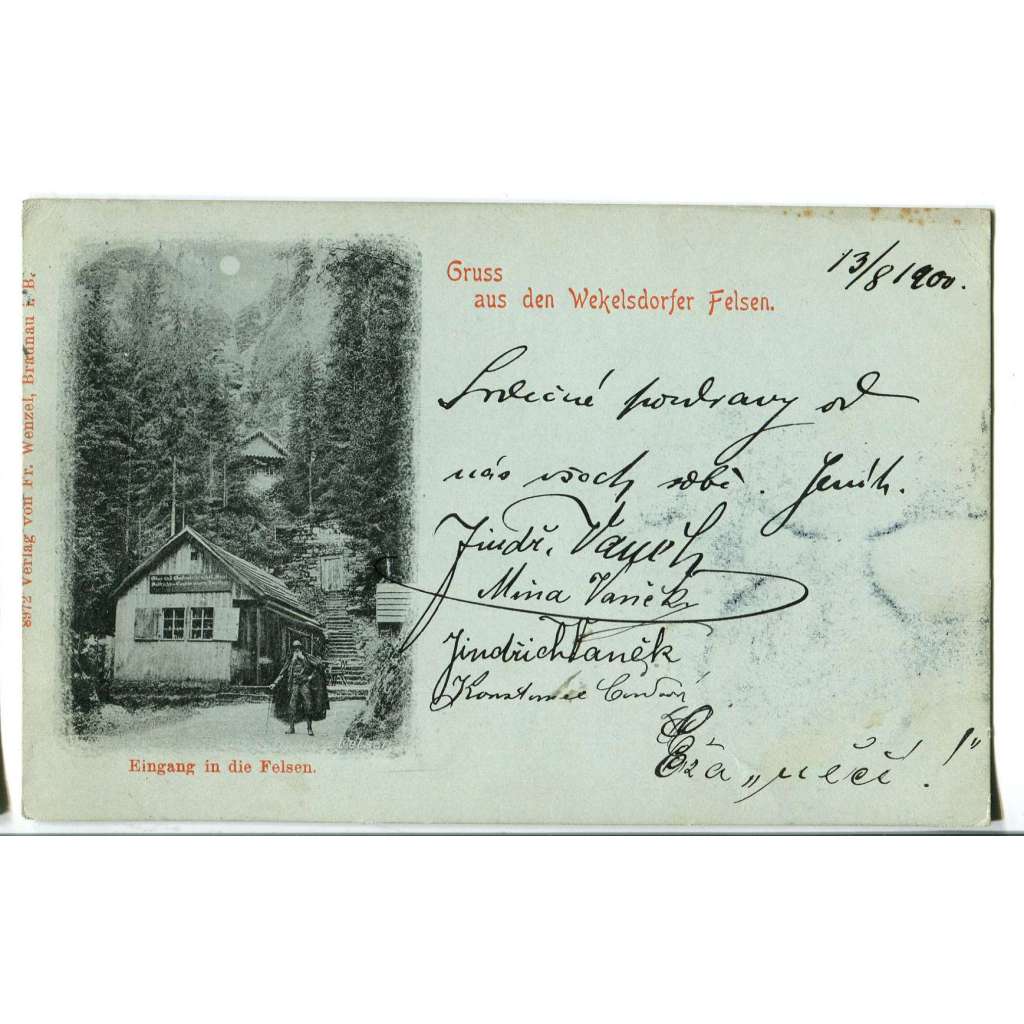 Gruss
aus den Wekelsdorfer Felsen.
13/8 1900.
Srdečné pozdravy od
nás všech tobě. Jeník.
Jindř. Vaněk
Mina Vaněk
Jindřich Vaněk
Eža „něči!"
Eingang in die Felsen.
8972 Verlag von Fr. Wenzel, Braunau i. B.